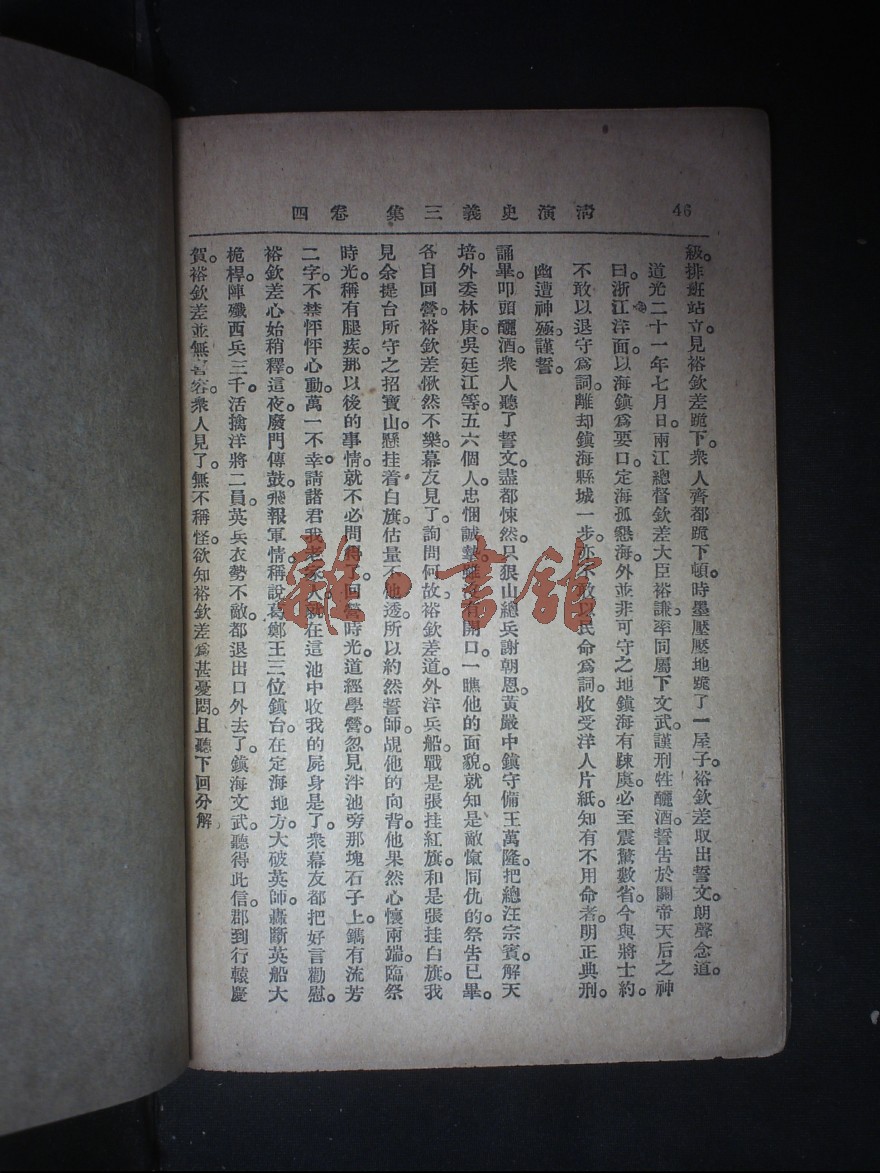 46　清演史義三集　卷四
級。排班站立。見裕欽差跪下。衆人齊都跪下。頓時墨壓壓地跪了一屋子。裕欽差取出誓文。朗聲念道。
道光二十一年七月日。兩江總督欽差大臣裕謙。率同屬下文武。謹刑牲釃酒。誓告於關帝天后之神
曰。浙江洋面。以海鎮爲要口。定海孤懸海外。並非可守之地。鎮海有疎虞。必至震驚數省。今與將士約。
不敢以退守爲詞。離却鎮海縣城一步。亦不敢以民命爲詞。收受洋人片紙。知有不用命者。明正典刑。
幽遭神殛。謹誓。
誦畢。叩頭釃酒。衆人聽了誓文。盡都悚然。只狼山總兵謝朝恩。黃嚴中鎮守備王萬隆。把總汪宗賓。解天
培。外委林庚。吳廷江等。五六個人。忠悃誠摯。雖沒有開口。一瞧他的面貌。就知是敵愾同仇的。祭告已畢。
各自回營。裕欽差愀然不樂。幕友見了。詢問何故。裕欽差道。外洋兵船。戰是張挂紅旗。和是張挂白旗。我
見余提台所守之招寶山。懸挂着白旗。估量不他透。所以約然誓師。覘他的向背。他果然心懷兩端。臨祭
時光。稱有腿疾。那以後的事情。就不必問得了。回營時光。道經學營。忽見泮池旁那塊石子上。鐫有流芳
二字。不禁怦怦心動。萬一不幸。請諸君我老家人。就在這池中收我的屍身是了。衆幕友都把好言勸慰。
裕欽差心始稍釋。這夜廢門傳鼓。飛報軍情。稱說葛鄭王三位鎮台。在定海地方。大破英師。轟斷英船大
桅桿。陣殲西兵三千。活擒洋將二員。英兵衣勢不敵。都退出口外去了。鎮海文武。聽得此信。郡到行轅慶
賀。裕欽差並無喜容。衆人見了。無不稱怪。欲知裕欽差爲甚憂悶。且聽下回分解
雜·書館